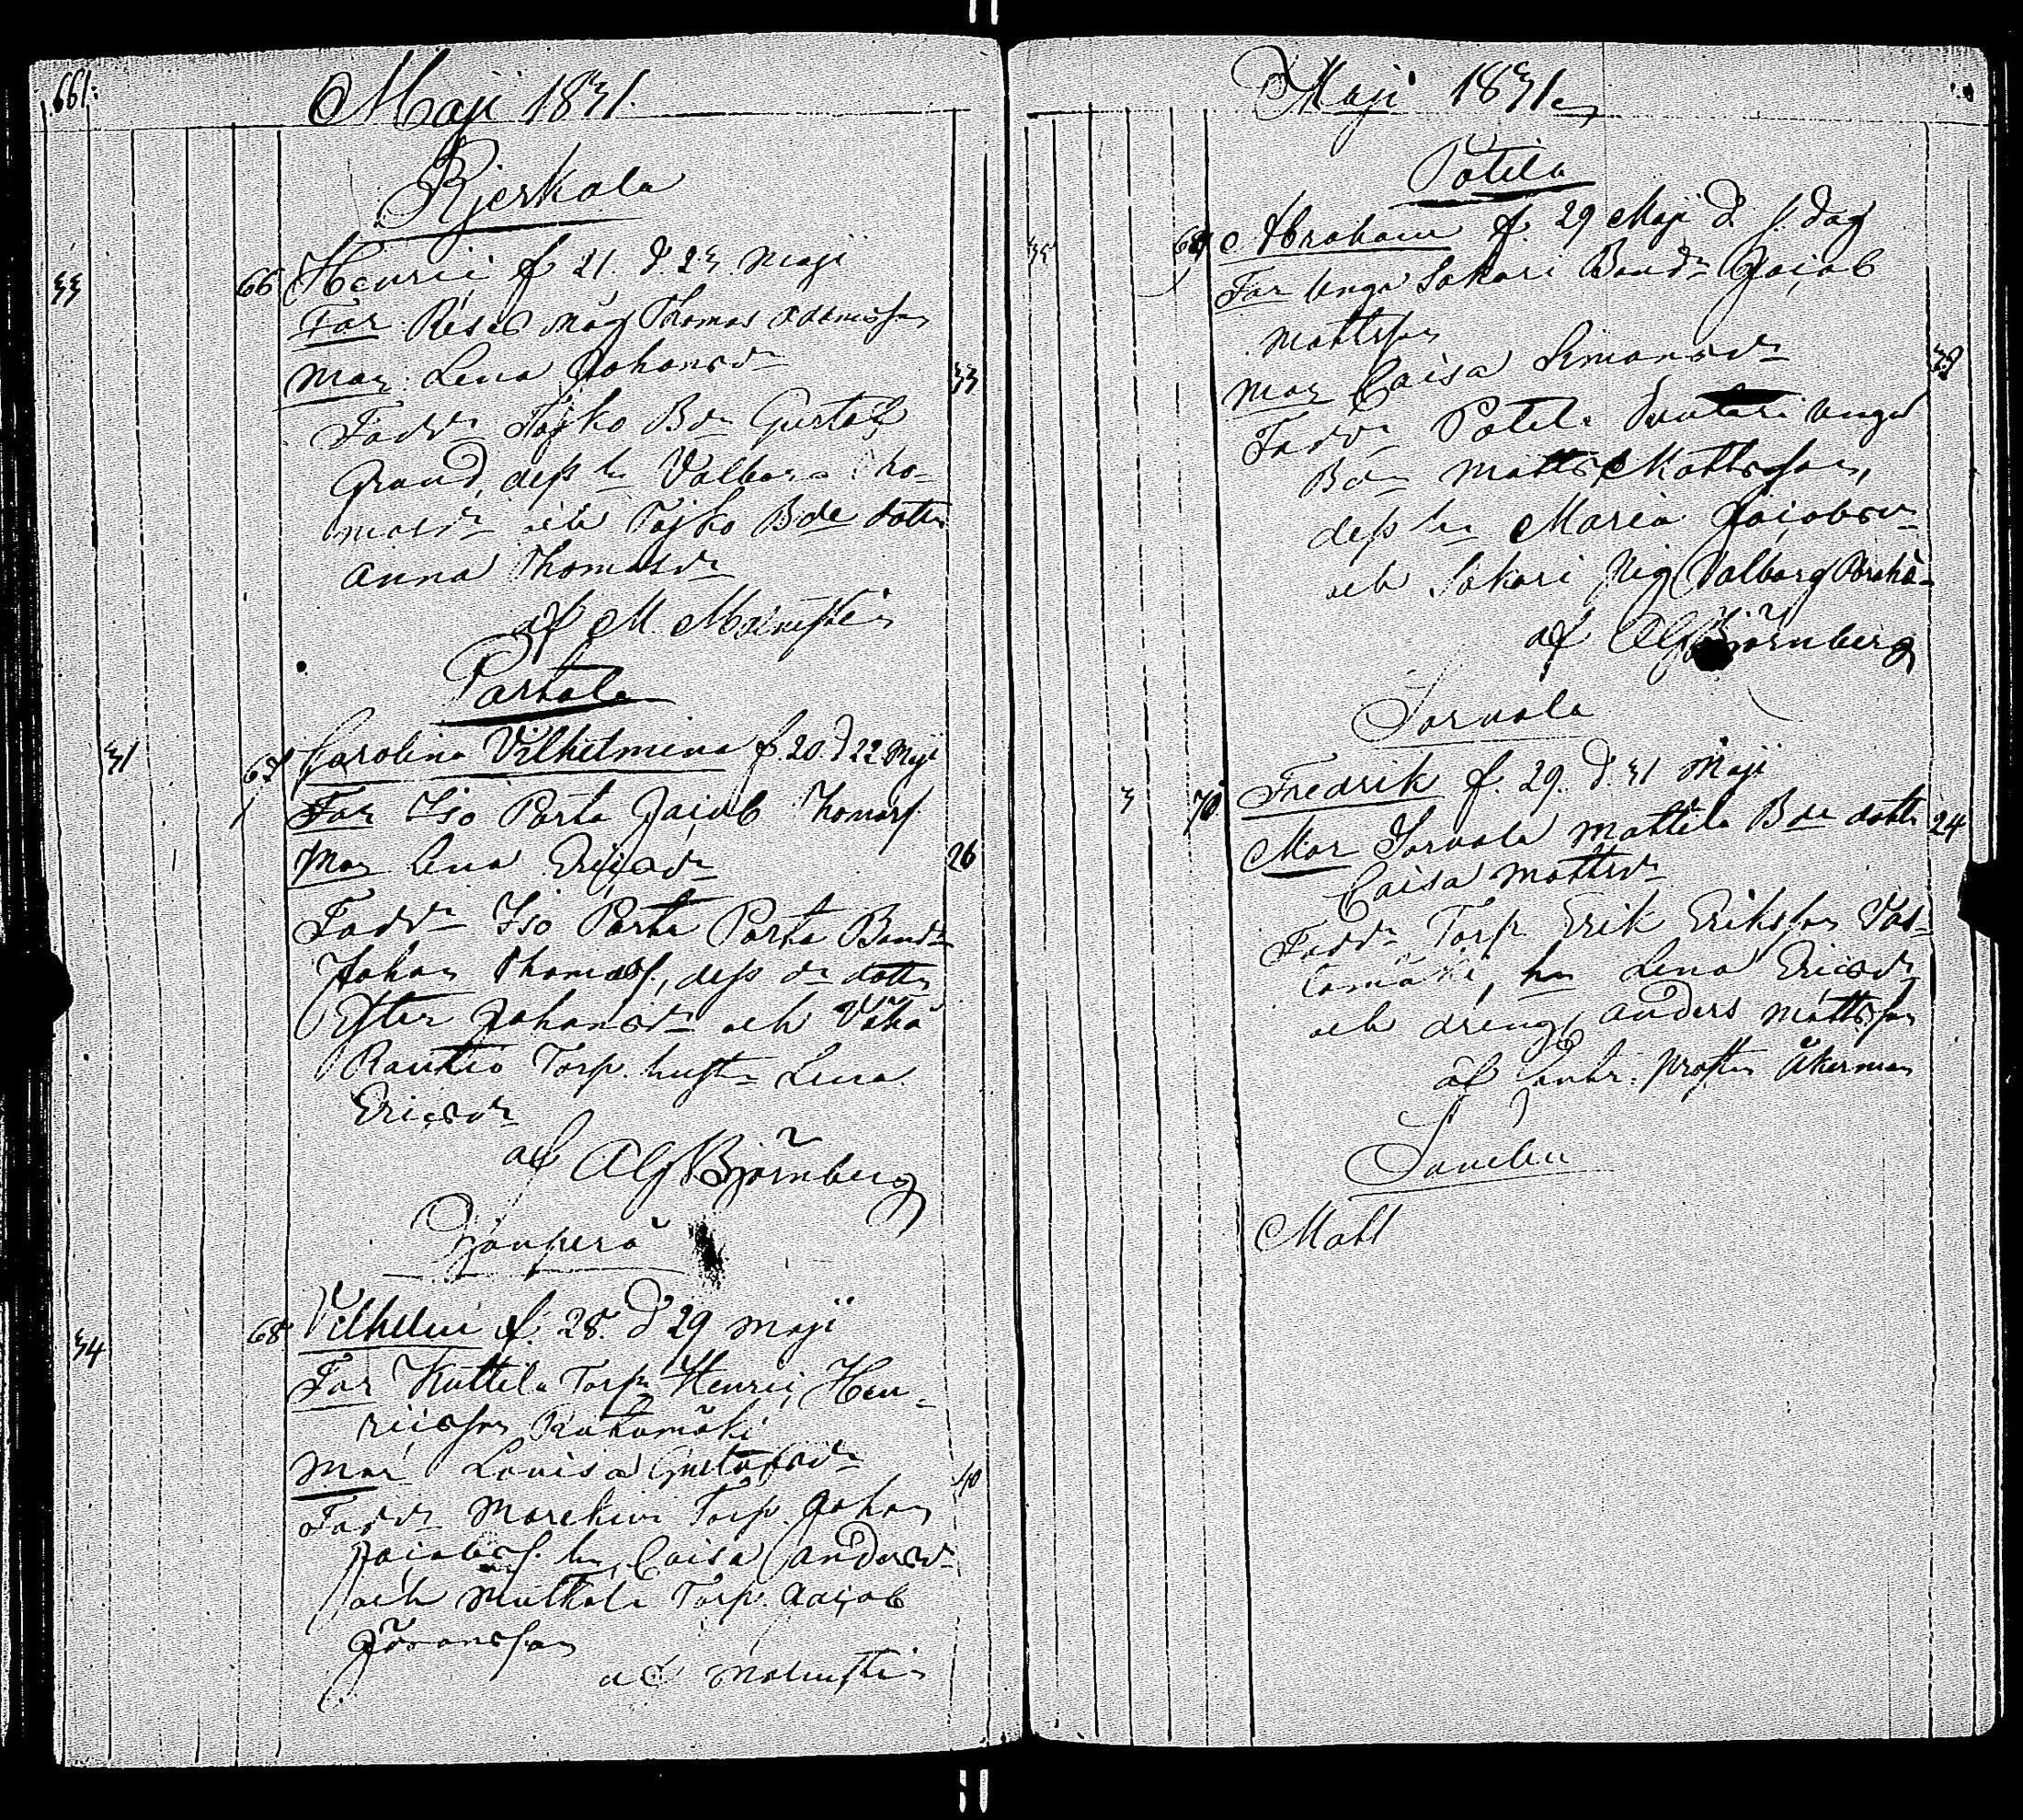 661.
Maji 1831.
Kjerkola
33 66 Henric f 21. d. 23. Maji
Far: Måg Thomas Adamsson
Mor: Lena Johansdr 33
Faddr Tojko Bdn Gustaf
Grand, dess hu Valborg Tho-
masdr och Tojko Bde dottr
Anna Thomasdr
af M. Malmsten
Partola
31 67 Carolina Vilhelmina f. 20. d 22 Maji
Far Iso Parta Jacob Thomass.
Mor Lena Ericsdr 26
Faddr Iso Parta Parta Bondn
Johan Thomass., dess dr dottr
Ester Johansdr och Vähä
Rautio Torp. hustr Lena
Ericsdr
af A G Björnberg
34 68. Vilhelm f. 28. d 29 Maji
Far Kuttila Torp. Henric Hen-
ricsson Rahamäki
Mor Lovisa Gustafsdr 40
Faddr Torp. Johan
Jacobss. hu Caisa Andersdr
och Torp. Jacob
Göransson
af Malmsten
Maji 1831
Potila
35 69 Abraham f. 29 Maji d. s. dag
Far Unga Sakari Bondn Jacob
Mattsson
Mor Caisa Simonsdr
Faddr Potila Suutari unga
Bdn Matts Mattsson,
dess hu Maria Jacobsdr
och Sakari Pig Valborg
af A G Björnberg
Sorvola
3 70 Fredrik f. 29. d. 31 Maji
Mor Sorvola Mattila Bde dottr 24
Caisa Mattsdr
Faddr Torp Erik Eriksson Val-
camäki, hu Lena Ericsdr
och dreng Anders Mattsson
af Prosten Åkerman
Matt